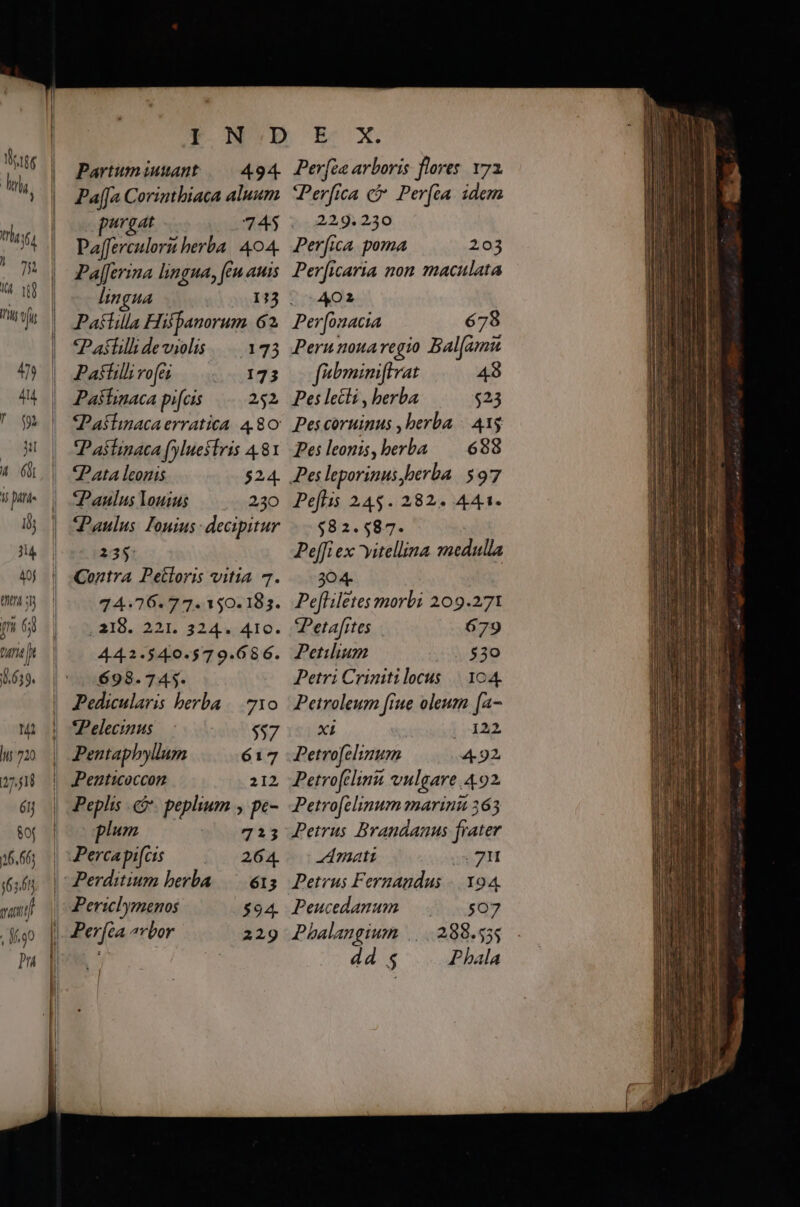 INDEX.
Partum iuuant 494.
Paſſa Corinthiaca aluum
purgat 745
Paſſerculorũ herba 404.
Paſſerina lingua, ſeu auis
lingua 133
Paſtilla Hiſpanorum 62
Paſtilli de violis 173
Paſtilli roſei 173
Paſtinaca piſcis 252
Paſtinaca erratica 480
Paſtinaca ſylueſtris 481
Pata leonis 524.
Paulus Iouius 230
Paulus Iouius decipitur
235
Contra Pectoris vitia 7.
74.76.77.150.183.
218. 221. 324. 410.
442.540.579.686.
698.745.
Pedicularis herba 710
Pelecinus 557
Pentaphyllum 617
Penticoccon 212
Peplis & peplium, pe-
plum 723
Perca piſcis 264.
Perditium herba 613
Periclymenos 594.
Perſea arbor 229
Perſeæ arboris flores 172
Perſica & Perſea idem
229.230
Perſica poma 203
Perſicaria non maculata
402
Perſonacia 678
Peru noua regio Balſamũ
ſubminiſtrat 48
Pes lecti, herba 523
Pes coruinus, herba 415
Pes leonis, herba 688
Pes leporinus, herba 597
Peſtis 245. 282. 441.
582.587.
Peſſi ex vitellina medulla
304.
Peſtiletes morbi 209.271
Petaſites 679
Petilium 530
Petri Criniti locus 104.
Petroleum ſiue oleum ſa-
xi 122
Petroſelinum 492
Petroſelinũ vulgare 492
Petroſelinum marinũ 363
Petrus Brandanus frater
Amati 711
Petrus Fernandus 194
Peucedanum 507
Phalangium 288.535
dd 5 Phala